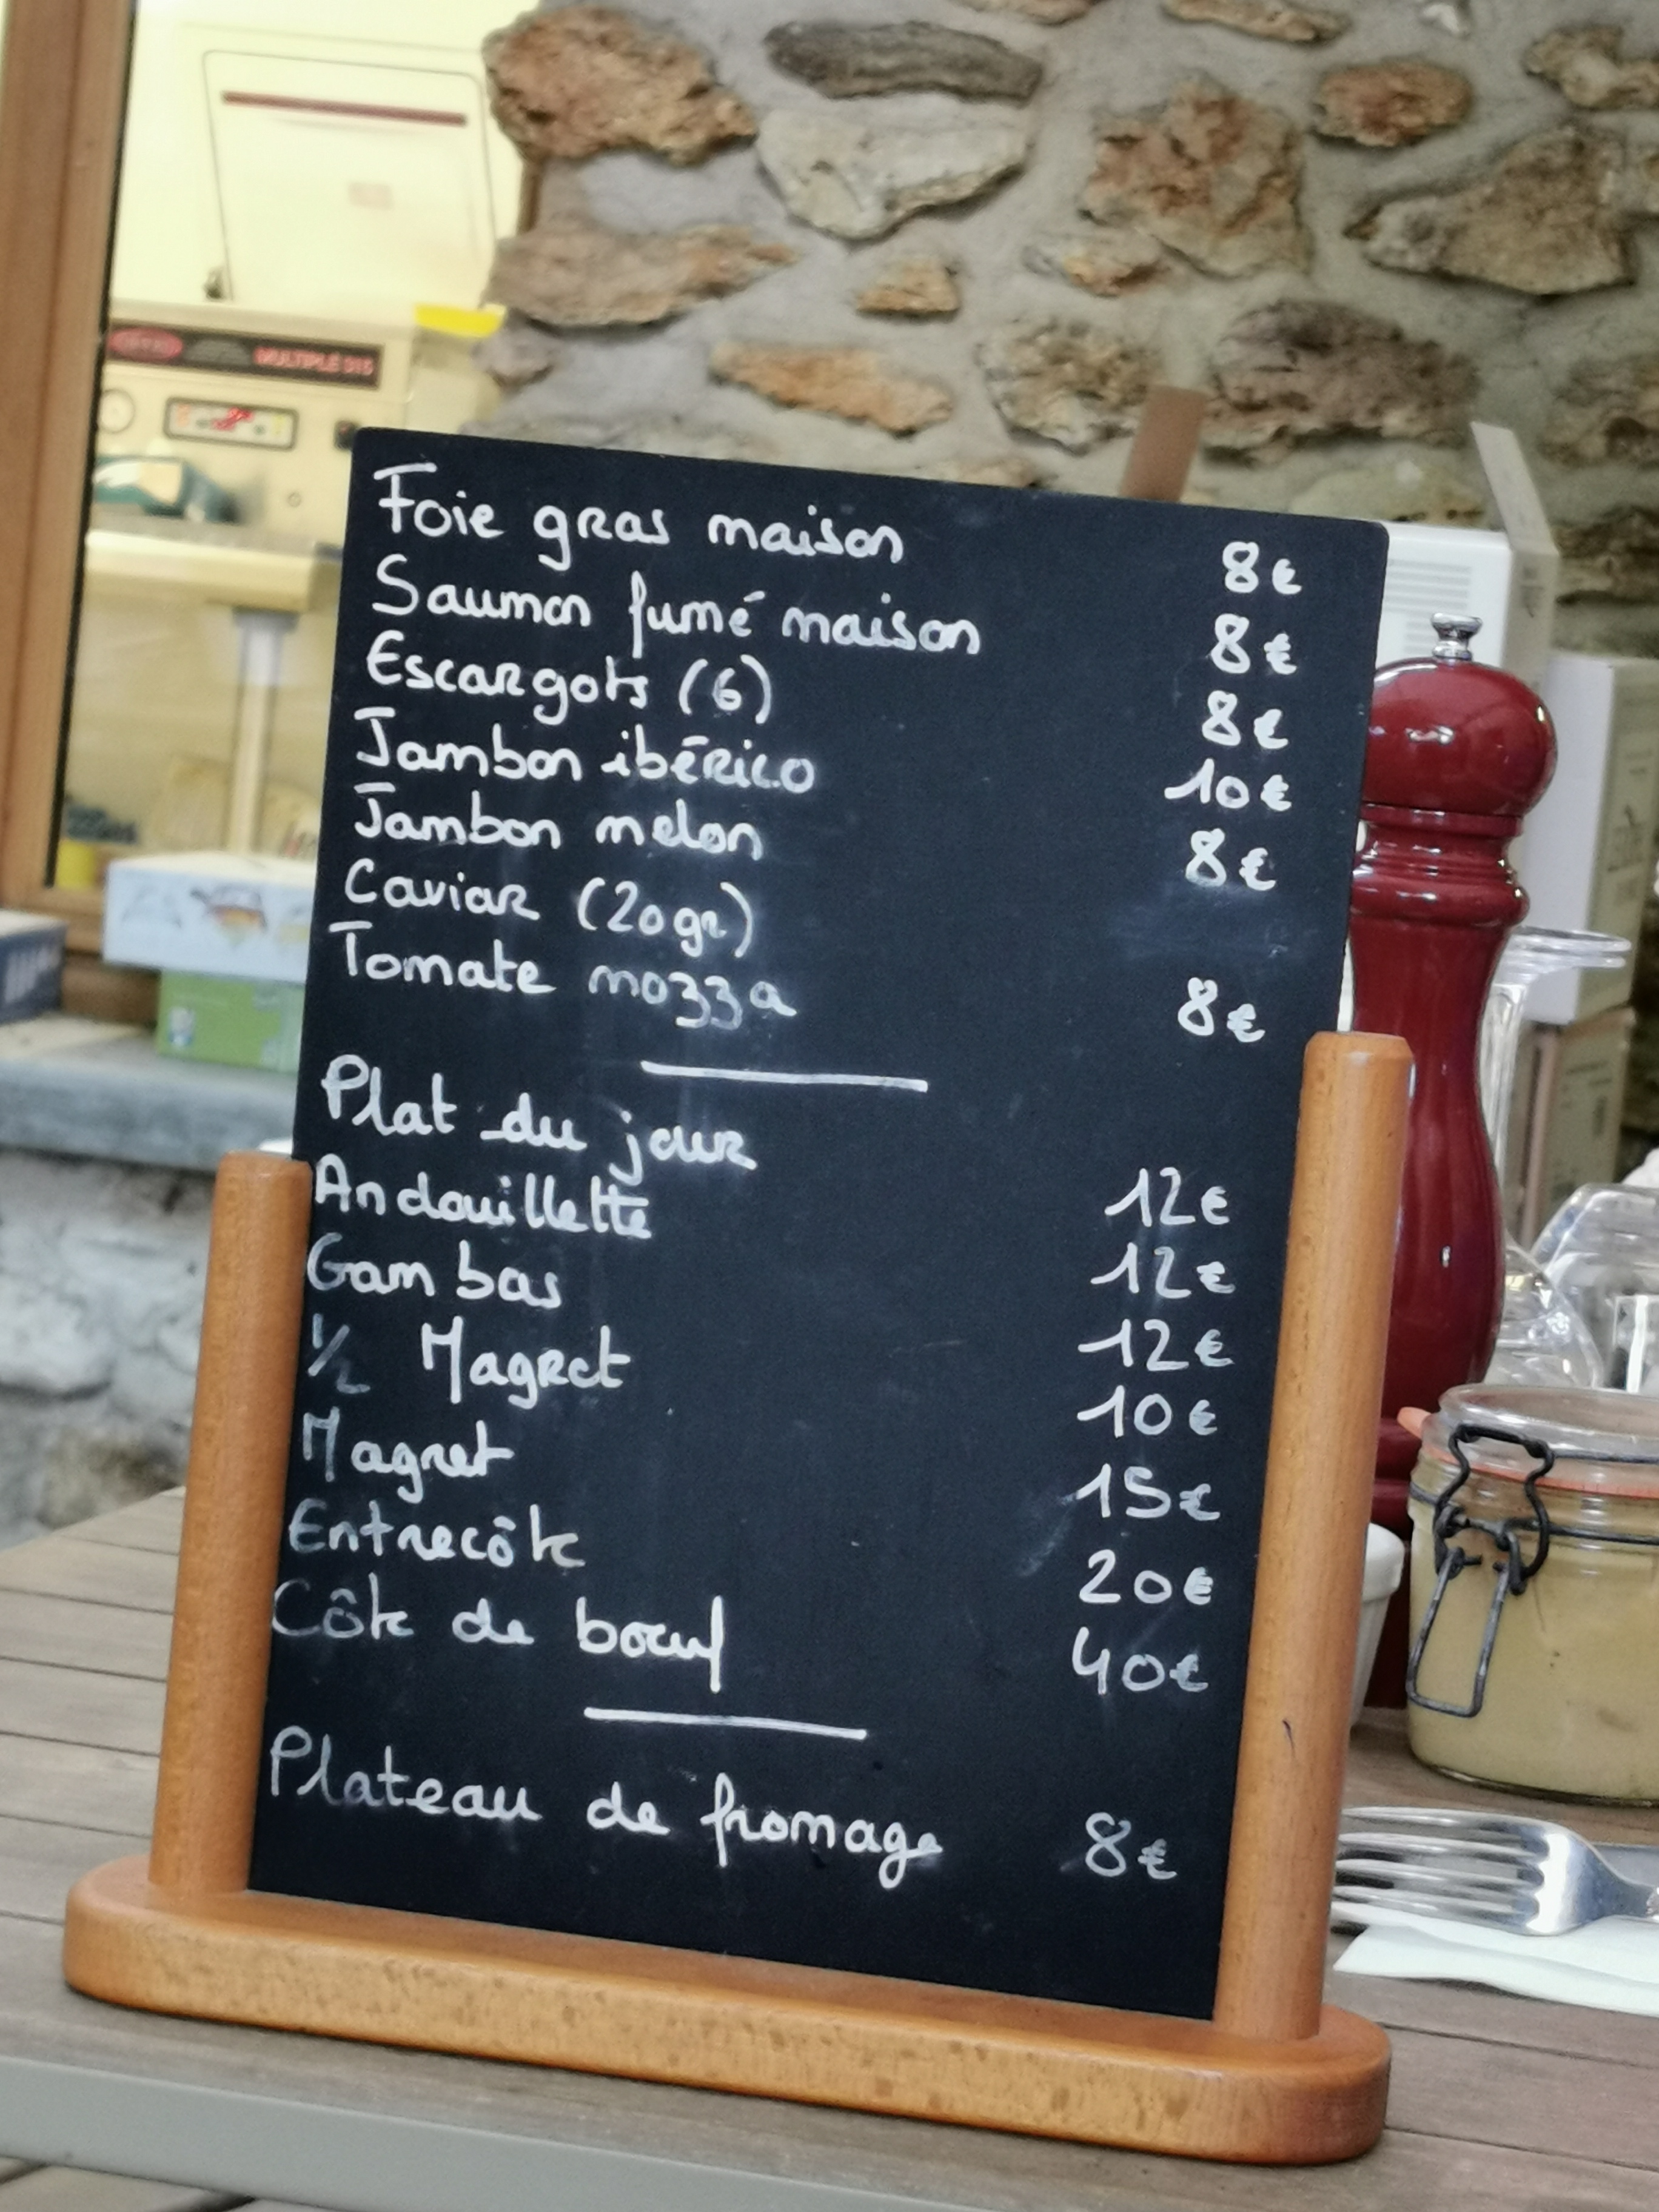 MULTIPLE 315
Foie gras maison 8€
Saumon fumé maison 8€
Escargots (6) 8€
Jambon ibérico 10€
Jambon melon 8€
Caviar (20gr)
Tomate mozza 8€
Plat du jour 12€
Andouillette 12€
Gambas 12€
1/2 Magret 10€
Magret 15€
Entrecôte 20€
Côte de boeuf 40€
Plateau de fromage 8€